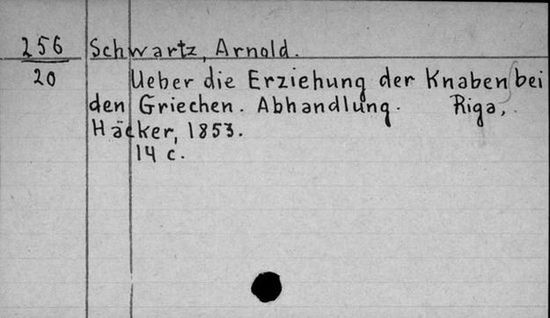 256 Schwartz, Arnold.
20 Ueber die Erziehung der Knaben bei
den Griechen. Abhandlung. Riga,
Häcker, 1853.
14 c.